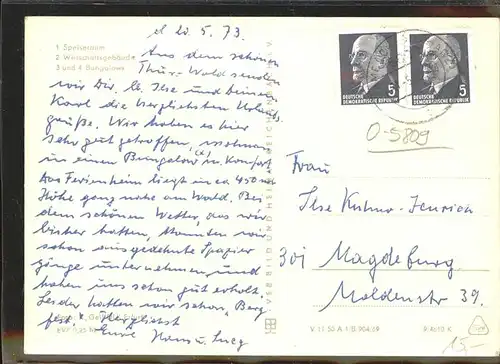 d. 20. 5. 73.
1 Speiseraum
2 Wirtschaftsgebäude
3 und 4 Bungalows
Aus dem schönen
Thür. Wald senden
wir Dir, lb. Ilse und Deinem
Karl die herzlichsten Urlaubs-
grüße. Wir haben es hier
sehr gut getroffen, wohnen
in einem Bungalow m. Komfort
Das Ferienheim liegt in ca 450 m
Höhe ganz nahe am Wald. Bei
dem schönen Wetter, das wir
bisher hatten, konnten wir
schon ausgedehnte Spazier
gänge unternehmen, und
haben uns schon gut erholt.
Leider hatten wir schon "Berg
fest". Herzlichst
Eure Hans u. Inge
EVP 0,25
VEB BILD UND HEIMAT REICHENBACH I. V.
5
DEUTSCHE
DEMOKRATISCHE REPUBLIK
5
DEUTSCHE
DEMOKRATISCHE REPUBLIK
0-5809
Frau
Ilse
301 Magdeburg
Moldenstr 39.
V 11 50 A 1/B 904/69
15,-